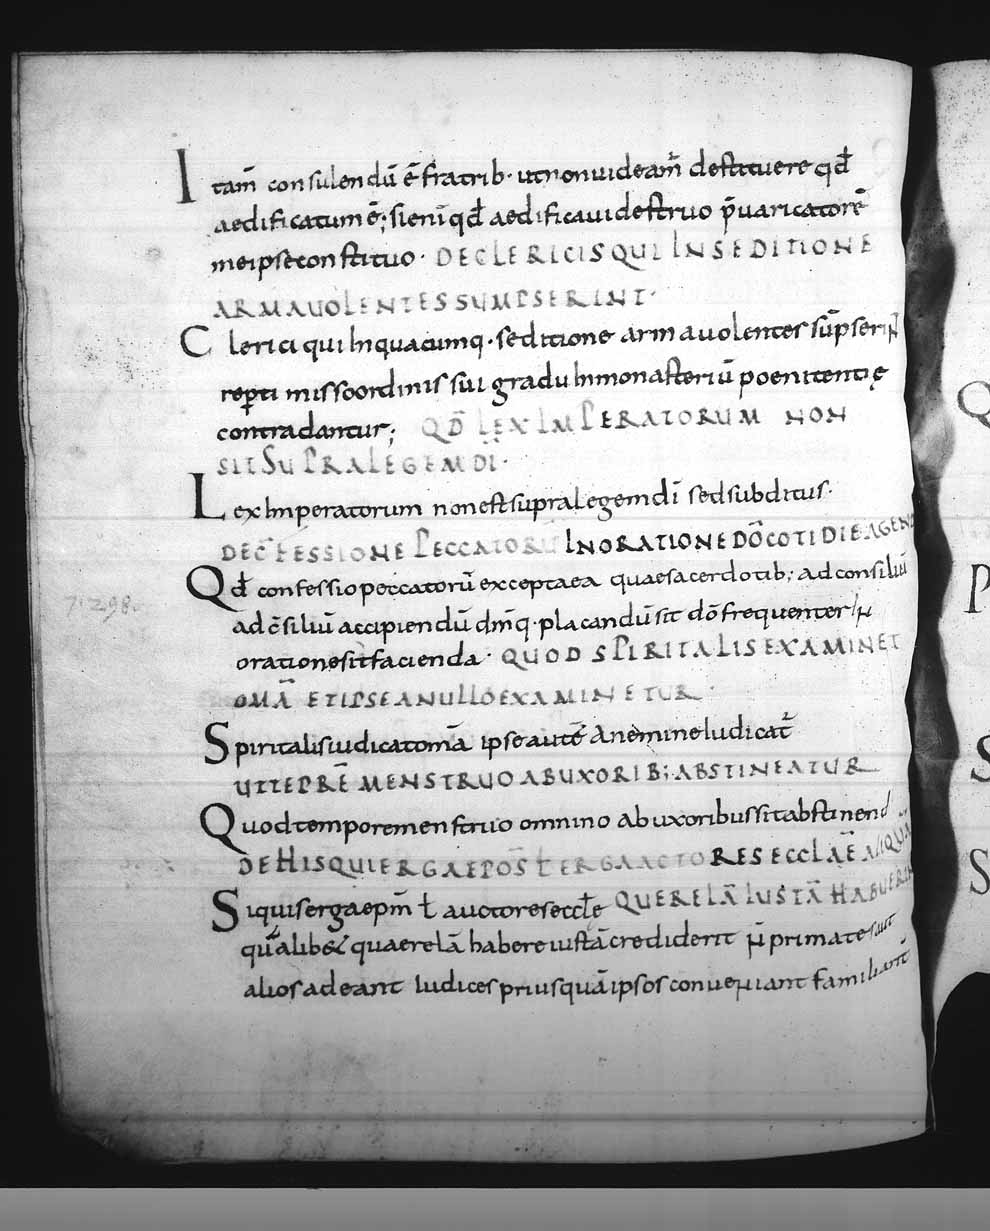 Itam̄ consulendū ē fratrib· ut nonuideam̄ destituere qđ
aedificatum ē; si eni qđ aedificaui destruo p̄uaricatorē
me ipse constituo · DE CLERICIS QUI IN SEDITIONE
ARMA UOLENTES SUMPSERINT·
Clerici qui In quacumq· seditione arma uolentes sūpserint
repti missoordinis sui gradu In monasteriū poenitentię
contradantur; QĐ LEX IMPERATORUM NON
SIT SUPRA LEGEM DI·
Lex Imperatorum non est supra legem dī sed subditus·
DE CONFESSIONE PECCATORU IN ORATIONE DŌ COTIDIE AGEND
Qđ confessio peccatorū excepta ea quae sacerdotib; ad consiliū
ad c̄siliū accipiendū dm̄q· placandū sit dō frequenter In
oratione sit facienda · QUOD SPIRITALIS EXAMINET
OMĀ ET IPSE A NULLO EXAMINETUR ·
Spiritalis iudicat omā ipse autē A nemine Iudicat̄
UT TEPRE MENSTRUO AB UXORIB; ABSTINEATUR
Quod tempore menstruo omnino ab uxoribus sit abstinend
DE HIS QUI ERGA EPOS ł ERGA ACTORES ECCLAE ALIQUĀ
Siquis erga epm̄ ł auctores eccłe QUERELĀ IUSTĀ HABUERIN
quālib& quaerelā habere iustā crediderit n̄ primates aut
alios adeant Iudices priusquā ipsos conueniant familiarit̄
7·298·